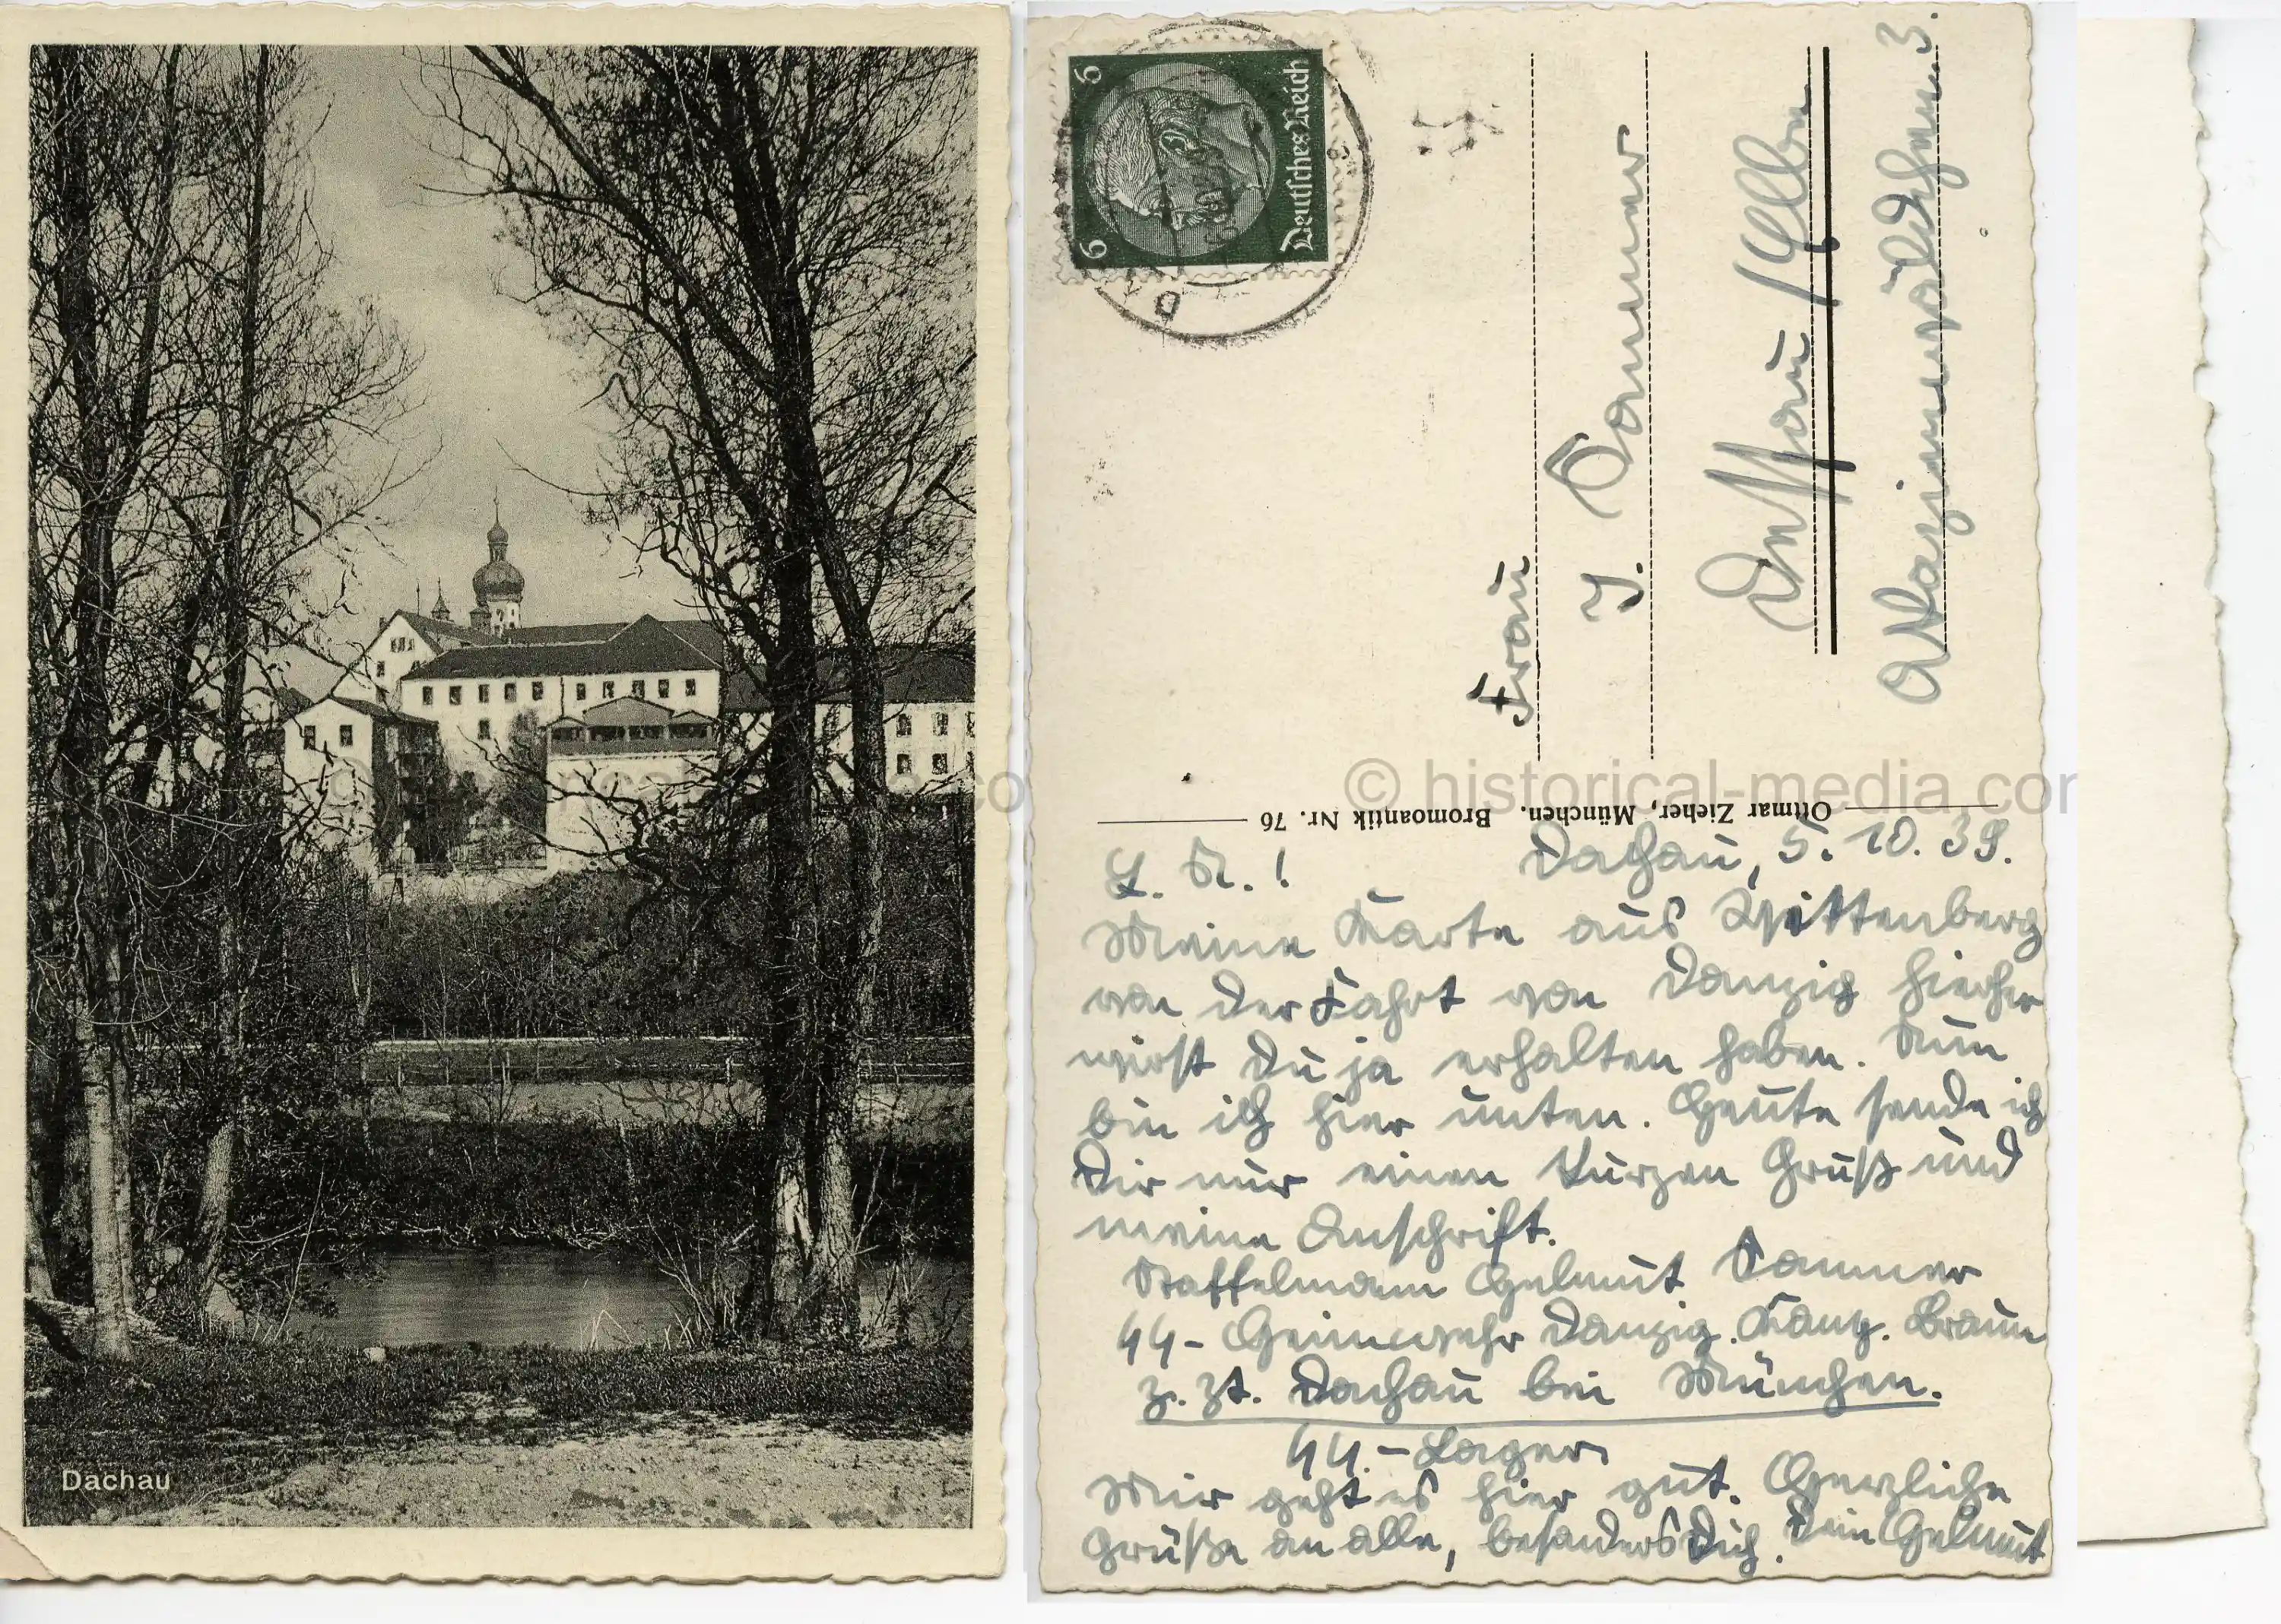 Dachau
6
6
Deutsches Reich
Frau
I. Dammer
Dessau / Elbe
Ottmar Zieher, München. Bromoantik Nr. 76
L. R.! Dachau, 5. 10. 39.
Meine Karte aus Wittenberg
von der Fahrt von Danzig hierher
wirst Du ja erhalten haben. Nun
bin ich hier unten. Heute sende ich
Dir nur einen kurzen Gruß und
meine Anschrift.
Staffelmann Helmut Dammer
SS-Heimwehr Danzig. Braun
z. Zt. Dachau bei München.
SS.-Lager
Mir geht es hier gut. Herzliche
Grüße an alle, besonders Dich. Dein Helmut
© historical-media.com